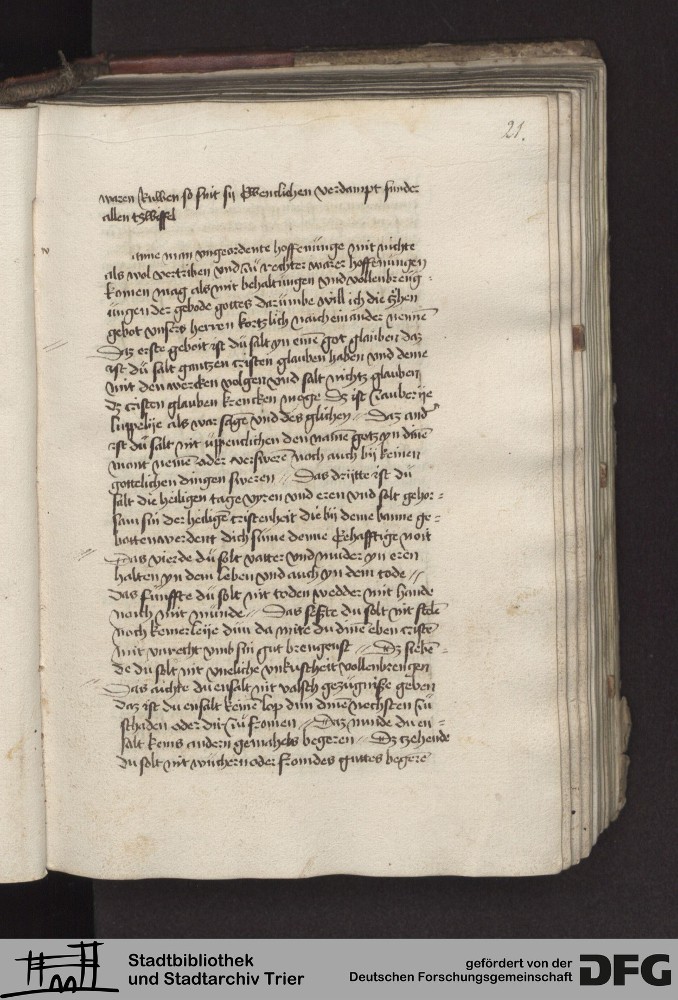 21.
waren Ruwen so sint sy Ewenclichen verdampt sunder
allen tzwiffel
w
ume man vngeordente hoffenunge mit nichte
als wol vertriben vnd zu rechter warer hoffenungen
komen mag als mit behaltungen vnd vollenbreng
ungen der gebode gottes darumbe will ich die tzhen
gebot vnsers herren kortzlich naich ein ander nenne
Daz erste geboit ist du salt yn eine got glauben daz
ist du salt gantzen cristen glauben haben vnd deme
mit den wercken volgen vnd salt nichtz glauben
dz cristen glauben krencken moge dz ist zauberije
luppelije als war sagen vnd des glichen Daz and
ist du salt nit uppenclichen den name gotz yn dine
mont nemen oder versweren noch auch bij keinen
gottelichen dingen sweren Das drijtte ist du
salt die heiligen tage vyren vnd eren vnd salt gehor=
sam sin der heilige cristenheit die bij deme banne ge=
botten werdent dich sume denne Eehafftige noit
Das vierde du solt vatter vnd muder yn eren
halten yn dem leben vnd auch yn dem tode
Das funffte du solt nit toden wedder mit hande
noich mit munde Das seszte du solt nit stele
noch keinerleije dun da mite du dine eben criste
mit vnrecht vmb sin gut brengenst Dz sieben=
de du solt nit vneliche vnkuscheit vollenbrengen
Das aichte du ensalt nit valsch gezugnisze geben
daz ist du ensalt keine lop dun dine nechsten zu
schaden oder dir zu fromen Daz nunde du en=
salt keins andern gemahels begeren Dz tzehende
du solt nit wuchern oder fromdes guttes begere
Stadtbibliothek
und Stadtarchiv Trier
gefördert von der
Deutschen Forschungsgemeinschaft
DFG